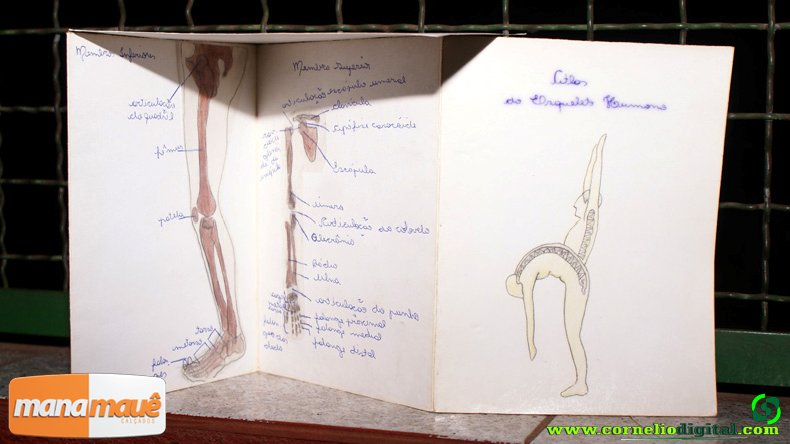 Membro Inferiores
articulação
do quadril
fêmur
patela
tarso
metatarso
Membro Superior
articulação escápulo umeral
clavícula
Epífise coracóide
Escápula
úmero
Articulação do cotovelo
Olecrânio
Rádio
Ulna
articulação do punho
falange proximal
falange medial
falange distal
Atlas
do Esqueleto Humano
manamauê
CALÇADOS
www.corneliodigital.com